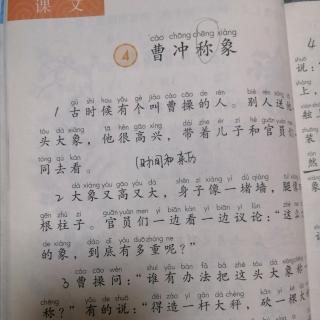 课文
cáo chōng chēng xiàng
4 曹冲称象
gǔ shí hou yǒu gè jiào cáo cāo de rén bié rén sòng
1 古时候有个叫曹操的人。别人送他
tóu dà xiàng tā hěn gāo xìng
头大象，他很高兴，带着儿子和官员们
tóng qù kàn
同去看。
dà xiàng yòu gāo yòu dà shēn zi xiàng yì dǔ qiáng
2 大象又高又大，身子像一堵墙，腿像
gēn zhù zi guān yuán men yì biān kàn yì biān yì lùn
根柱子。官员们一边看一边议论："这么
de xiàng dào dǐ yǒu duō zhòng ne
的象，到底有多重呢？"
cáo cāo wèn shuí yǒu bàn fǎ bǎ zhè tóu dà xiàng chēng
3 曹操问："谁有办法把这头大象称
称？"有的说："得造一杆大秤，砍一棵大